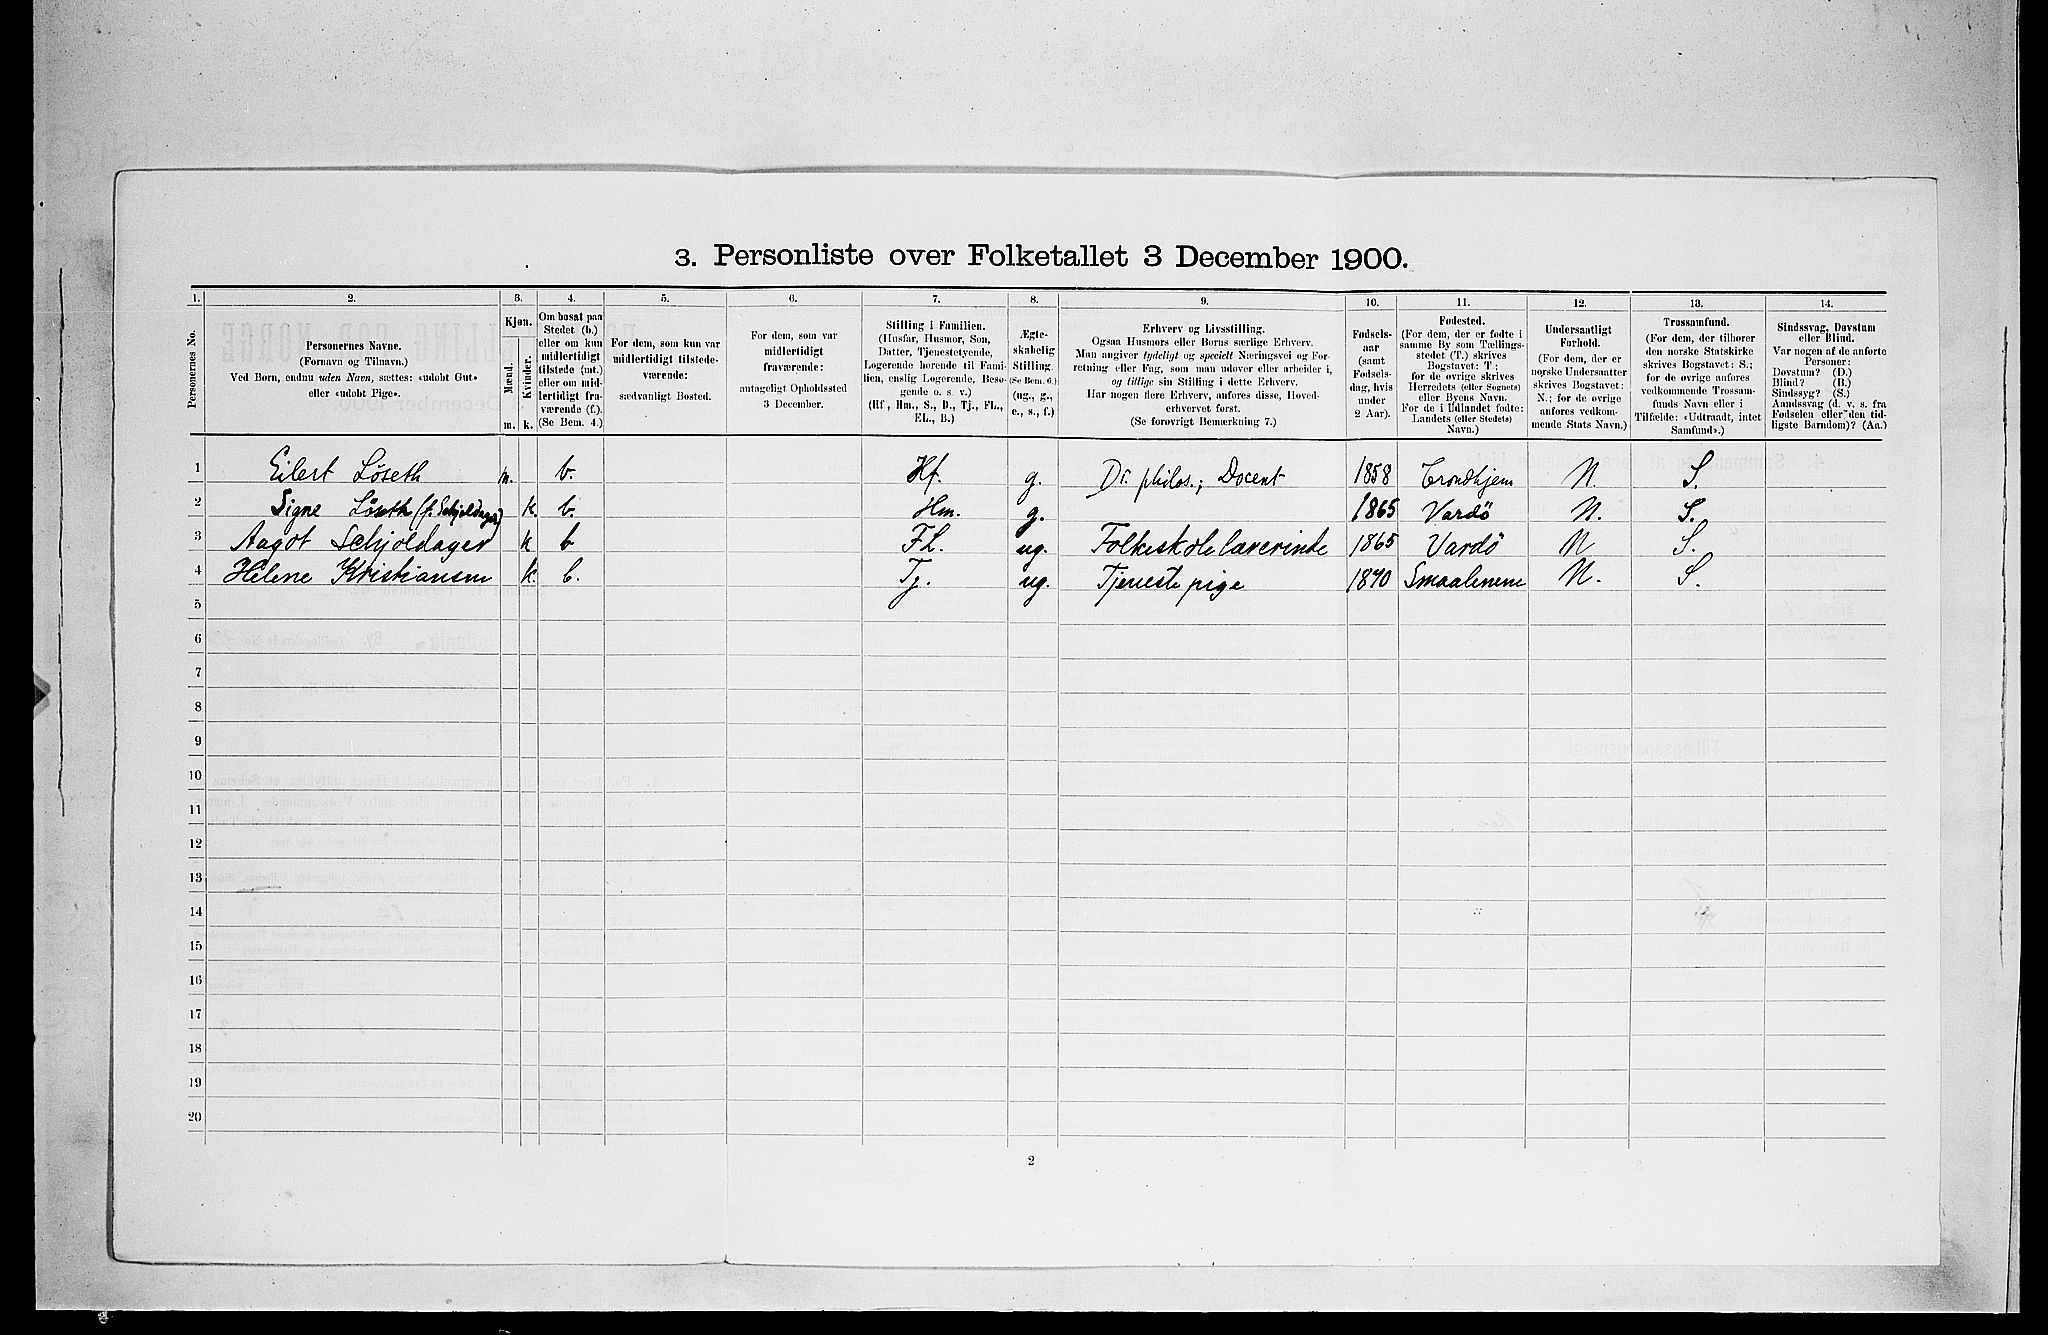 3. Personliste over Folketallet 3 December 1900.
1. 2. 3. 4. 5. 6. 7. 8. 9. 10. 11. 12. 13. 14.
Personernes No.
Personernes Navne.
(Fornavn og Tilnavn.)
Ved Børn, endnu uden Navn, sættes: «udøbt Gut»
eller «udøbt Pige».
Kjøn.
Mænd.
Kvinder.
m. k.
Om bosat paa
Stedet (b.)
eller om kun
midlertidigt
tilstede (mt.)
eller om mid-
lertidigt fra-
værende (f.)
(Se Bem. 4.)
For dem, som kun var
midlertidigt tilstede-
værende:
sædvanligt Bosted.
For dem, som var
midlertidigt
fraværende:
antageligt Opholdssted
3 December.
Stilling i Familien.
(Husfar, Husmor, Søn,
Datter, Tjenestetyende,
Logerende hørende til Fami-
lien, enslig Logerende, Besø-
gende o. s. v.)
(Hf., Hm., S., D., Tj., FL.,
EL., B.)
Ægte-
skabelig
Stilling.
(Se Bem. 6.)
(ug., g.,
e., s., f.)
Erhverv og Livsstilling.
Ogsaa Husmors eller Børns særlige Erhverv.
Man angiver tydeligt og specielt Næringsvei og For-
retning eller Fag, som man udøver eller arbeider i,
og tillige sin Stilling i dette Erhverv.
Har nogen flere Erhverv, anføres disse, Hoved-
erhvervet først.
(Se forøvrigt Bemærkning 7.)
Fødsels-
aar
(samt
Fødsels-
dag, hvis
under
2 Aar).
Fødested.
(For dem, der er fødte i
samme By som Tællings-
stedet (T.) skrives
Bogstavet: T;
for de øvrige skrives
Herredets (eller Sognets)
eller Byens Navn.
For de i Udlandet fødte:
Landets (eller Stedets)
Navn.)
Undersaatligt
Forhold.
(For dem, der er
norske Undersaatter
skrives Bogstavet:
N.; for de øvrige
anføres vedkom-
mende Stats Navn.)
Trossamfund.
(For dem, der tilhører
den norske Statskirke
skrives Bogstavet: S.;
for de øvrige anføres
vedkommende Trossam-
funds Navn eller i
Tilfælde: «Udtraadt, intet
Samfund».)
Sindssvag, Døvstum
eller Blind.
Var nogen af de anførte
Personer:
Døvstum? (D.)
Blind? (B.)
Sindssyg? (S.)
Aandssvag (d. v. s. fra
Fødselen eller den tid-
ligste Barndom)? (Aa.)
1 Eilert Løseth m. b. Hf. g. Dr. philos.; Docent 1858 Trondhjem N. S.
2 Signe Løseth (f. Schjoldager) k. b. Hm. g. 1865 Vardö N. S.
3 Aagot Schjoldager k b FL. ug. Folkeskolelærerinde 1865 Vardö N S.
4 Helene Kristiansen k. b. Tj. ug. Tjenestepige 1870 Smaalenene N. S.
5
6
7
8
9
10
11
12
13
14
15
16
17
18
19
20
2